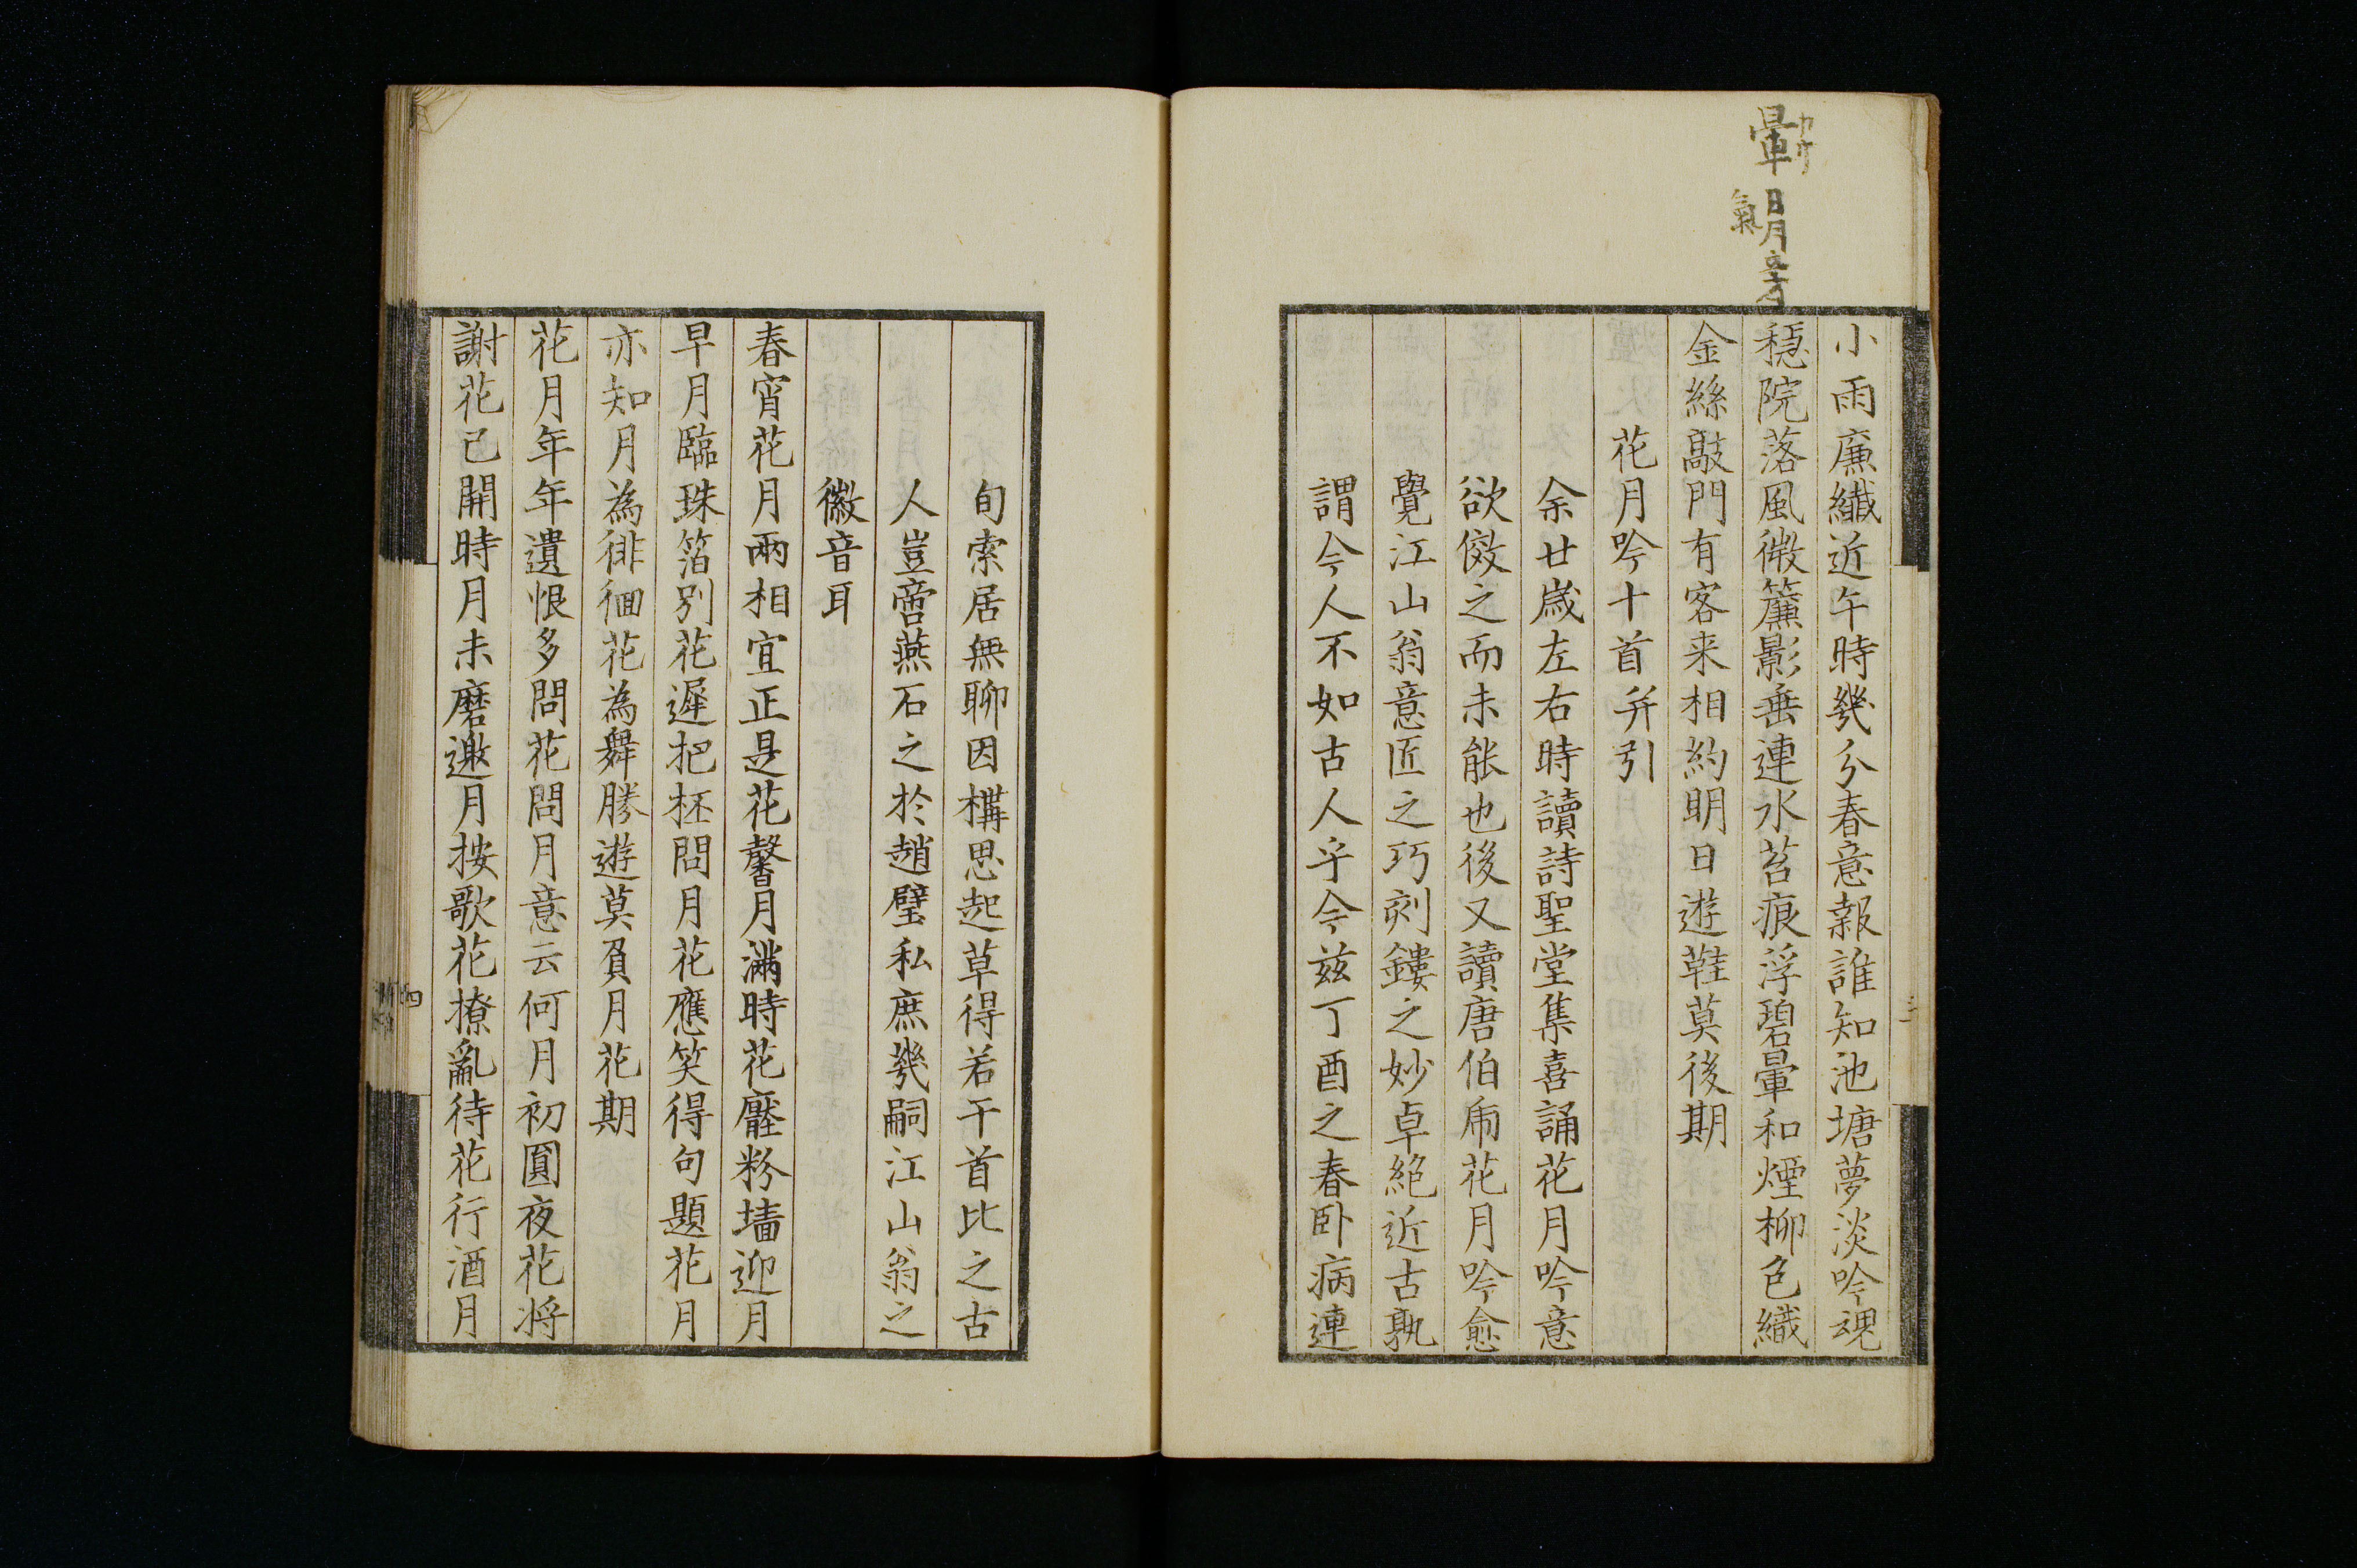 暈
カサ
日月旁
氣
小雨廉纖近午時幾分春意報誰知池塘夢淡吟魂
穩院落風微簾影垂連水苔痕浮碧暈和煙柳色織
金絲敲門有客来相約明日遊鞋莫後期
花月吟十首并引
余廿歲左右時讀詩聖堂集喜誦花月吟意
欲傚之而未能也後又讀唐伯帍花月吟愈
覺江山翁意匠之巧刻鏤之妙卓絕近古孰
謂今人不如古人乎今兹丁酉之春卧病連
三
旬索居無聊因構思起草得若干首比之古
人豈啻燕石之於趙璧私庶幾嗣江山翁之
徽音耳
春宵花月兩相宜正是花馨月滿時花壓粉墻迎月
早月臨珠箔別花遲把杯問月花應笑得句題花月
亦知月為徘徊花為舞勝遊莫負月花期
花月年年遺恨多問花問月意云何月初圓夜花将
謝花已開時月未磨邀月按歌花撩亂待花行酒月
四